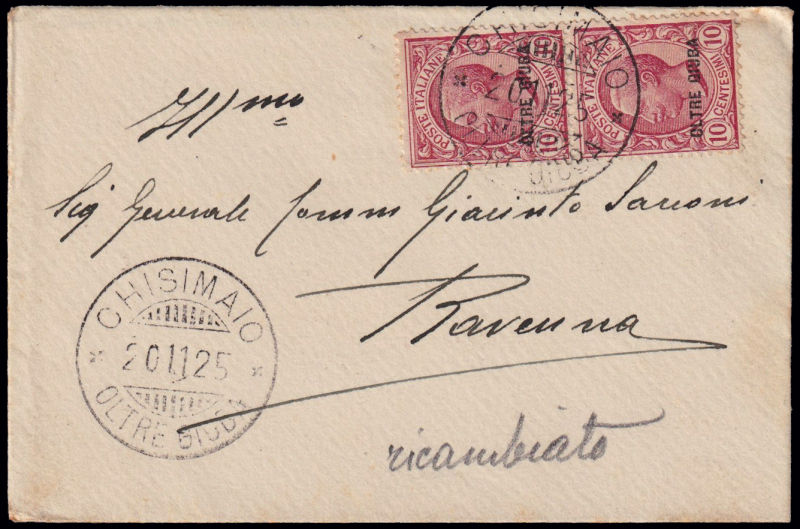 POSTE ITALIANE
10 CENTESIMI 10
OLTRE GIUBA
POSTE ITALIANE
10 CENTESIMI 10
OLTRE GIUBA
CHISIMAIO
Ill mo
Sig Generale Comm Giacinto Sacconi
Ravenna
CHISIMAIO
20 11 25
OLTRE GIUBA
ricambiato